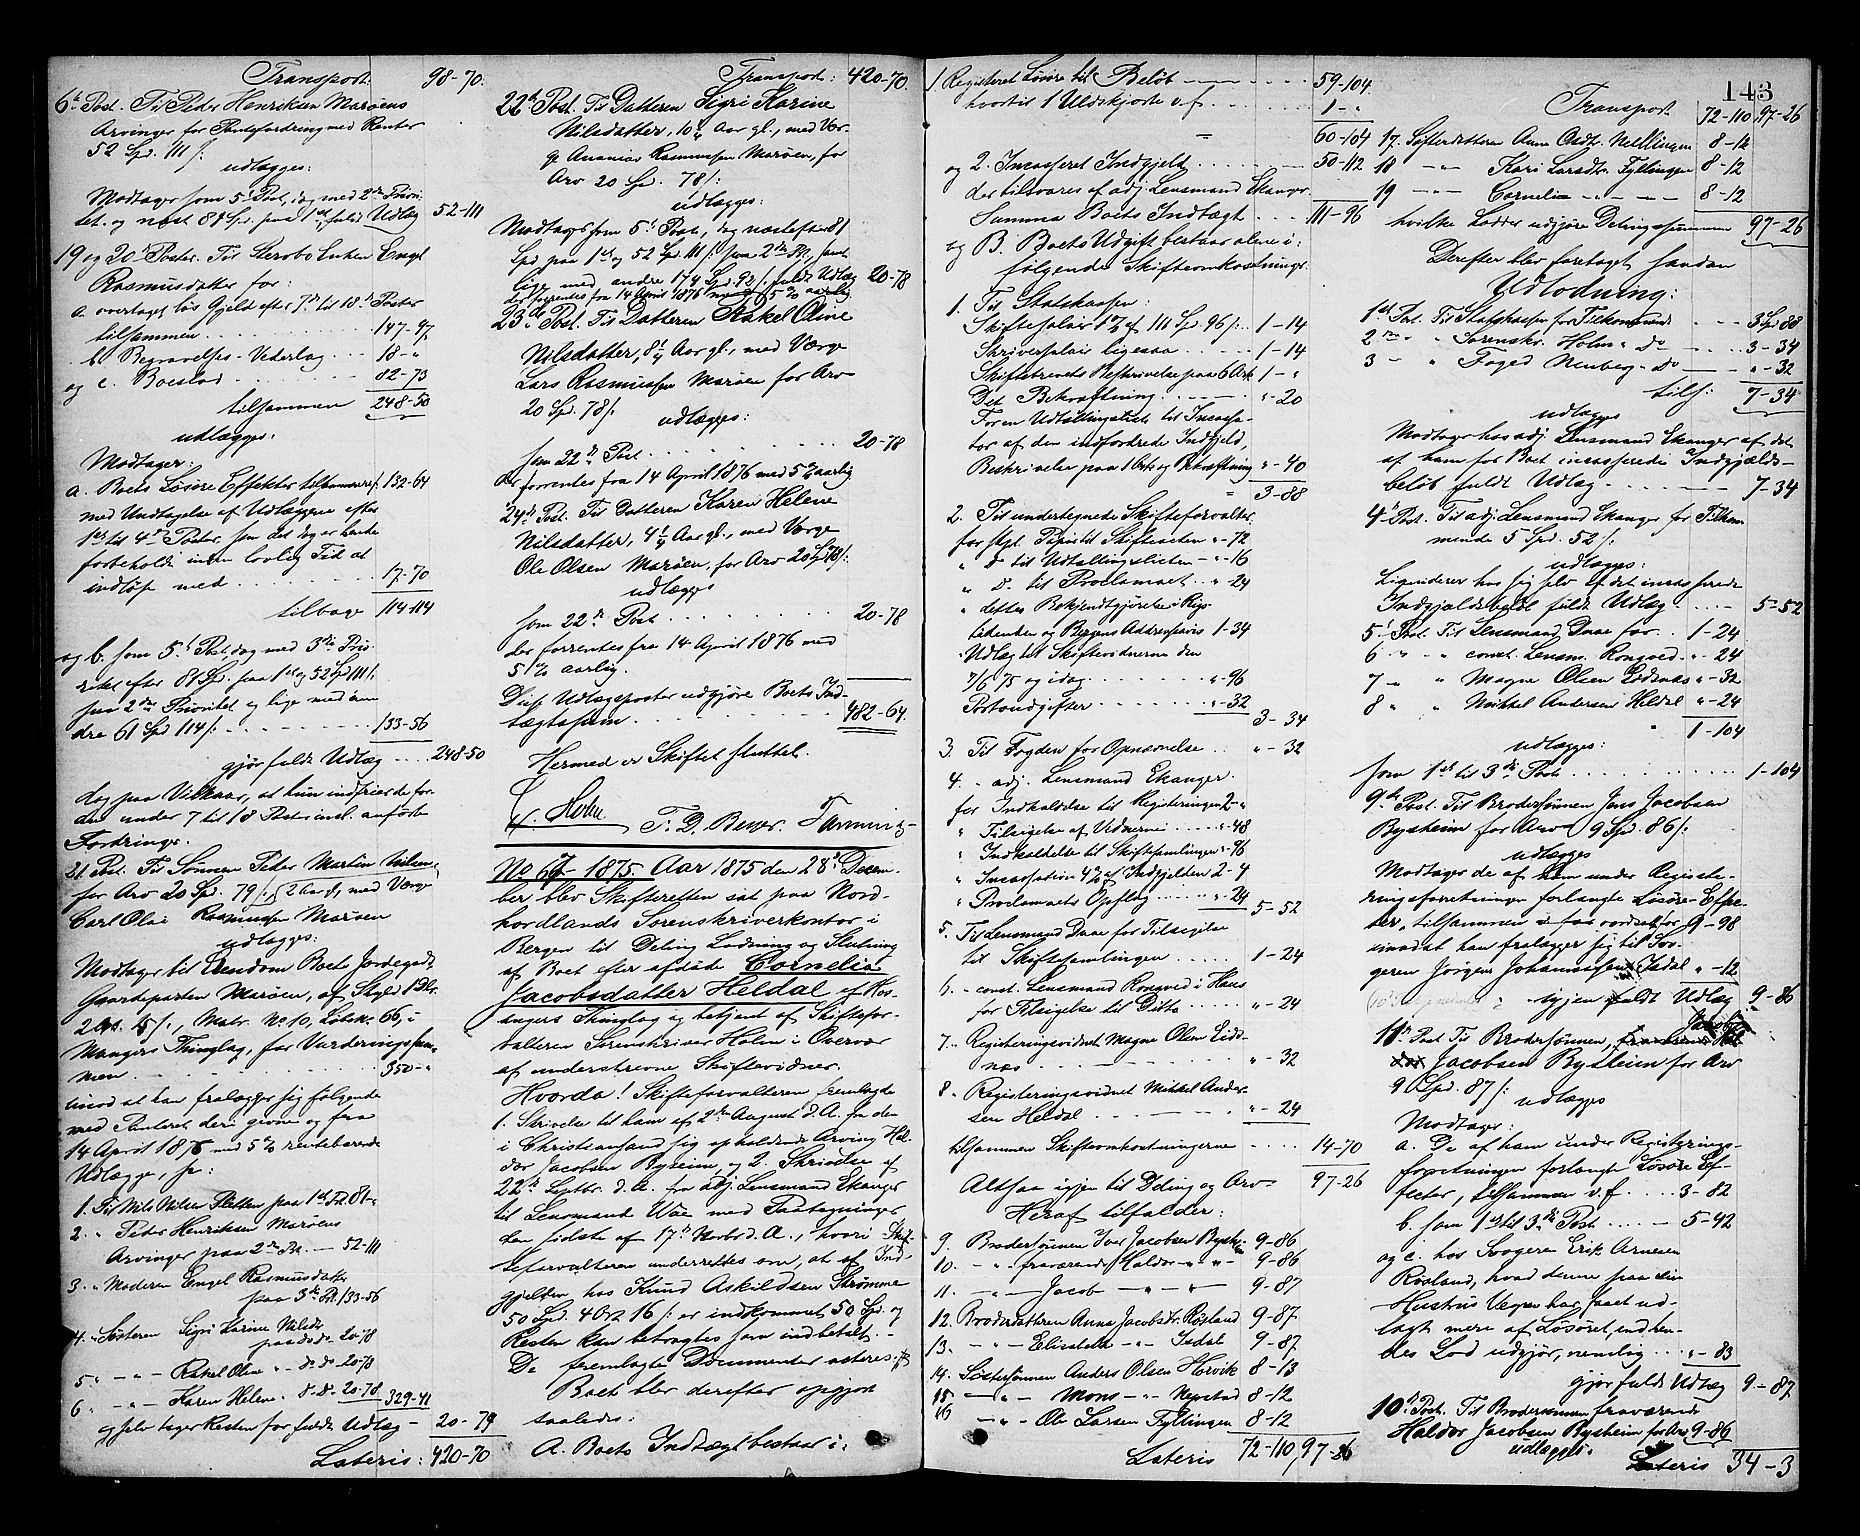 Transport: 98-70.
6te Post. Til Peder Henriksen Marøens
Arvinger for Pantefordring med Renter
52 Spd. 111 ß.
udlægges:
Modtager som 5t Post, dog med 2den Priori-
tet og næst 81 Spd. paa 1ste, fuld Udlæg 52-111
19 og 20d Poster. Til Stervbo Enken Engel
Rasmusdatter for:
a. overtaget Løs Gjeld efter 7de til 18d Poster
tilsammen . . . 147-97
b. Begravelses-Vederlag . . . 18-"
og c. Boeslod . . . 82-73
tilsammen 248-50
udlægges:
Modtager:
a. Boets Løsøre Effekter tilsammen v/ 132-64
med Undtagelse af Udlæggene efter
1ste til 4de Poster, som det dog er hende
forbeholdt inden lovlig Tid at
indløse med . . . 17-70
tilbage 114-114
og b. som 5t Post, dog med 3die Prio-
ritet efter 81 Spd. paa 1ste og 52 Spd 111 ß
paa 2den Prioritet og lige med an-
dre 61 Spd 114 ß. . . 133-56
gjør fuldt Udlæg . . . 248-50
dog paa Vilkaar, at hun indfrier de for-
den under 7 til 18 Post incl. anførte
Fordringer.
21 Post. Til Sønnen Peder Martin Nilsen
for Arv 20 Spd. 79 ß, 12 Aar gl, med Værge
Carl Olai Rasmussen Marøen
udlægges:
Modtager til Eiendom Boets Jordegods
Gaardparten Marøen, af Skyld 1 Dlr.
2 Ort. 15 ß., Matr. No 10, Løbek. 66, i
Mangers Thinglag, for Vurderingssum-
men . . . 350-"
imod at han fralægger sig følgende
med Panteret deri givne og fra
14 April 1876 med 5 % rentebærende
Udlægge, s.:
1. Til Nils Nilsen Sletten paa 1ste Pr. 81-"
2. " Peder Henriksen Marøens
Arvinger paa 2den Pr. - 52-111
3. " Moderen Engel Rasmusdatter
paa 3die Pr. 133-56
4. " Søsteren Sigri Karine Nilsdr
paa do do 20-78
5. " -"- Rakel Oline " do do 20-78
6. " -"- Karen Helene " d. d. 20-78 329-41
og selv tager Resten for fuldt Udlæg - 20-79
Lateris: 420-70
Transport: 420-70.
22de Post. Til Datteren Sigri Karine
Nilsdatter, 10 Aar gl., med Vær-
ge Ananias Rasmussen Marøen, for
Arv 20 Spd. 78 ß.
udlægges:
Modtager som 5t Post, dog næst efter 81
Spd paa 1ste og 52 Spd 111 ß paa 2den Pr, samt
lige med andre 174 Spd. 92 ß. fuldt Udlæg 20-78
der forrentes fra 14 April 1876 med 5 % aarlig
23de Post. Til Datteren Rakel Oline
Nilsdatter, 8 1/4 Aar gl., med Værge
Lars Rasmussen Marøen for Arv
20 Spd. 78 ß.
udlægges:
som 22de Post . . . 20-78
der forrentes fra 14 April 1876 med 5 % aarlig
24de Post. Til Datteren Karen Helene
Nilsdatter, 4 1/4 Aar gl., med Værge
Ole Olsen Marøen, for Arv 20 Spd 78 ß.
udlægges
som 22de Post . . . 20-78
der forrentes fra 14 April 1876 med
5 % aarlig.
Disse Udlægsposter udgjøre Boets Ind-
tægtssum . . . 482-64.
Hermed er Skiftet sluttet.
Holm
T. D. Beyer.
No 67-1875. Aar 1875 den 28d Decem-
ber blev Skifteretten sat paa Nord-
hordlands Sorenskriverkontor i
Bergen til Deling Lodning og Slutning
af Boet efter afdøde Cornelia
Jacobsdatter Heldal af Hos-
angers Thinglag og betjent af Skiftefor-
valteren Sorenskriver Holm i Overvær
af underskrevne Skiftevidner.
Hvorda! Skifteforvalteren fremlagde
1. Skrivelse til ham af 2den August d. A. fra den
i Christiansand sig opholdende Arving Hal-
dor Jacobsen Byseim, og 2. Skrivelse af
22de Septbr. d. A. fra adj. Lensmand Ekanger
til Lensmand Daae med Paategninger
den sidste af 17de Novbr d. A., hvori Skif-
teforvalteren underrettes om, at af Ind-
gjælden hos Knud Askildsen Strømme
50 Spd. 4 Ort 16 ß. er indkommet 50 Spd. og
Resten kan betragtes som indbetalt. -
De fremlagte Documenter acteres.
Boet blev derefter opgjort
saaledes:
A. Boets Indtægt bestaar i:
1. Registreret Løsøre til Beløb . . . 59-104
hvortil 1 Uldskjorte v. f. . . . 1-"
60-104
og 2. Incasseret Indgjeld . . . 50-112
der tilsvares af adj. Lensmand Ekanger
Summa Boets Indtægt . . . 111-96
og B. Boets Udgift bestaar alene i
følgende Skifteomkostninger:
1. Til Statskassen:
Skiftesalair 1 % af 111 Spd. 96 ß. . 1-14
Skriversalair ligesaa . . . 1-14
Skiftebrevets Beskrivelse paa 6 Ark 1-"
Det Bekræftning . . . "-20
For en Udtallingsliste til Incassa-
tor af den indfordrede Indgjeld,
Beskrivelse paa 1 Ark og Bekræftning "-40
" 3-88
2. Til undertegnede Skifteforvalter
for stpl. Papir til Skifteacten "-72
" d. til Udtallingslisten - "-16
" d. til Proclamaet . . "-24
" dettes Bekjendtgjørelse i Rigs-
tidenden og Bergens Addresseavis 1-34
Udlæg til Skiftevidnerne den
7/6 75 og idag . . . "-96
Portoudgifter . . . "-32 3-34
3. Til Fogden for Opnævnelse . . "-32
4. " adj. Lensmand Ekanger.
for Indkaldelse til Registeringen 2-"
" Tilsigelse af Vidnerne . . . "-48
" Indkaldelse til Skiftesamlingen "-96
" Incassation 4 % af Indgjelden 2-4
" Proclamaets Opslag . . . "-24 5-52
5. Til Lensmand Daae for Tilsigelse
til Skiftesamlingen . . . 1-24
6. " const. Lensmand Rongved i Haus
for Tilsigelse til Ditto . . . "-24
7. " Registeringsvidnet Magne Olsen Eids-
næs . . . "-32
8. " Registeringsvidnet Mikkel Ander-
sen Heldal . . . "-24
tilsammen Skifteomkostningerne . . . 14-70
Altsaa igjen til Deling og Arv 97-26
Heraf tilfalder:
9. Brodersønnen Iver Jacobsen Bysheim 9-86
10. -"- fraværende Haldor -"- "- 9-86
11. -"- Jacob -"- -"- 9-87
12. Broderdatteren Anna Jacobsdr. Røsland 9-87.
13. -"- Elisabeth -"- Isdal 9-87.
14. Søstersønnen Anders Olsen Horvik 8-13
15 -"- Mons -"- Nepstad 8-12
16 -"- Ole Larsen Fyllingen 8-12
Lateris 72-110, 97-26
143
Transport. 72-110, 97-26
17. Søsterdatteren Anna Osdr. Mellingen 8-12
18 -"- Kari Larsdtr. Fyllingen 8-12
19 -"- Cornelia -"- -"- 8-12
hvilke Lodder udgjøre Delingssummen 97-26
Derefter blev foretaget saadan
Udlodning:
1ste Post. Til Statskassen for Tilkommende . . 3 Spd 88
2den " " Sorenskr. Holm " Do . . 3-34
3 - " Foged Nenberg - Do . . "-32
tils: 7-34
udlægges
Modtager hos adj. Lensmand Ekanger af det
af ham for Boet incasserede Indgjælds-
beløb fuldt Udlæg . . . 7-34
4d Post. Til adj. Lensmand Ekanger for Tilkom-
mende 5 Spd. 52 ß.
udlægges:
Ligviderer hos sig selv af det incasserede
Indgjældsbeløb fuldt Udlæg . . . 5-52
5t Post. Til Lensmand Daae for . . 1-24
6 " " const. Lensm. Rongved . . "-24
7 " " Magne Olsen Eidsnæs "-32
8 " " Mikkel Andersen Heldal "-24
" 1-104
udlægges:
som 1ste til 3die Post . . . 1-104
9de Post. Til Brodersønnen Iver Jacobsen
Bysheim for Arv 9 Spd. 86 ß.
udlægges
Modtager de af ham under Registe-
ringsforretningen forlangte Løsøre Effec-
ter, tilsammen v for vurdsat for 9-98
imod at han fralægger sig til Svo-
geren Jørgen Johannessen Isdal "-12
igjen fuldt Udlæg 9-86
11te Post Til Brodersønnen Jakob
Jacobsen Bysheim for Arv
9 Spd. 87 ß. udlægges
Modtager:
a. De af ham under Registrerings-
forretningen forlangte Løsøre Ef-
fecter, tilsammen v. f. . . . 3-82
b. som 1ste til 3die Post . . . 5-42
og c. hos Svogeren Erik Arnesen
Røsland, hvad denne paa sin
Hustrus Vegne har faaet ud-
lagt mere af Løsøret, end hen-
des Lod udgjør, nemlig . . "-83
gjør fuldt Udlæg 9-87
10d Post. Til Brodersønnen fraværende
Haldor Jacobsen Bysheim for Arv 9-86
udlægges:
Lateris 34-3